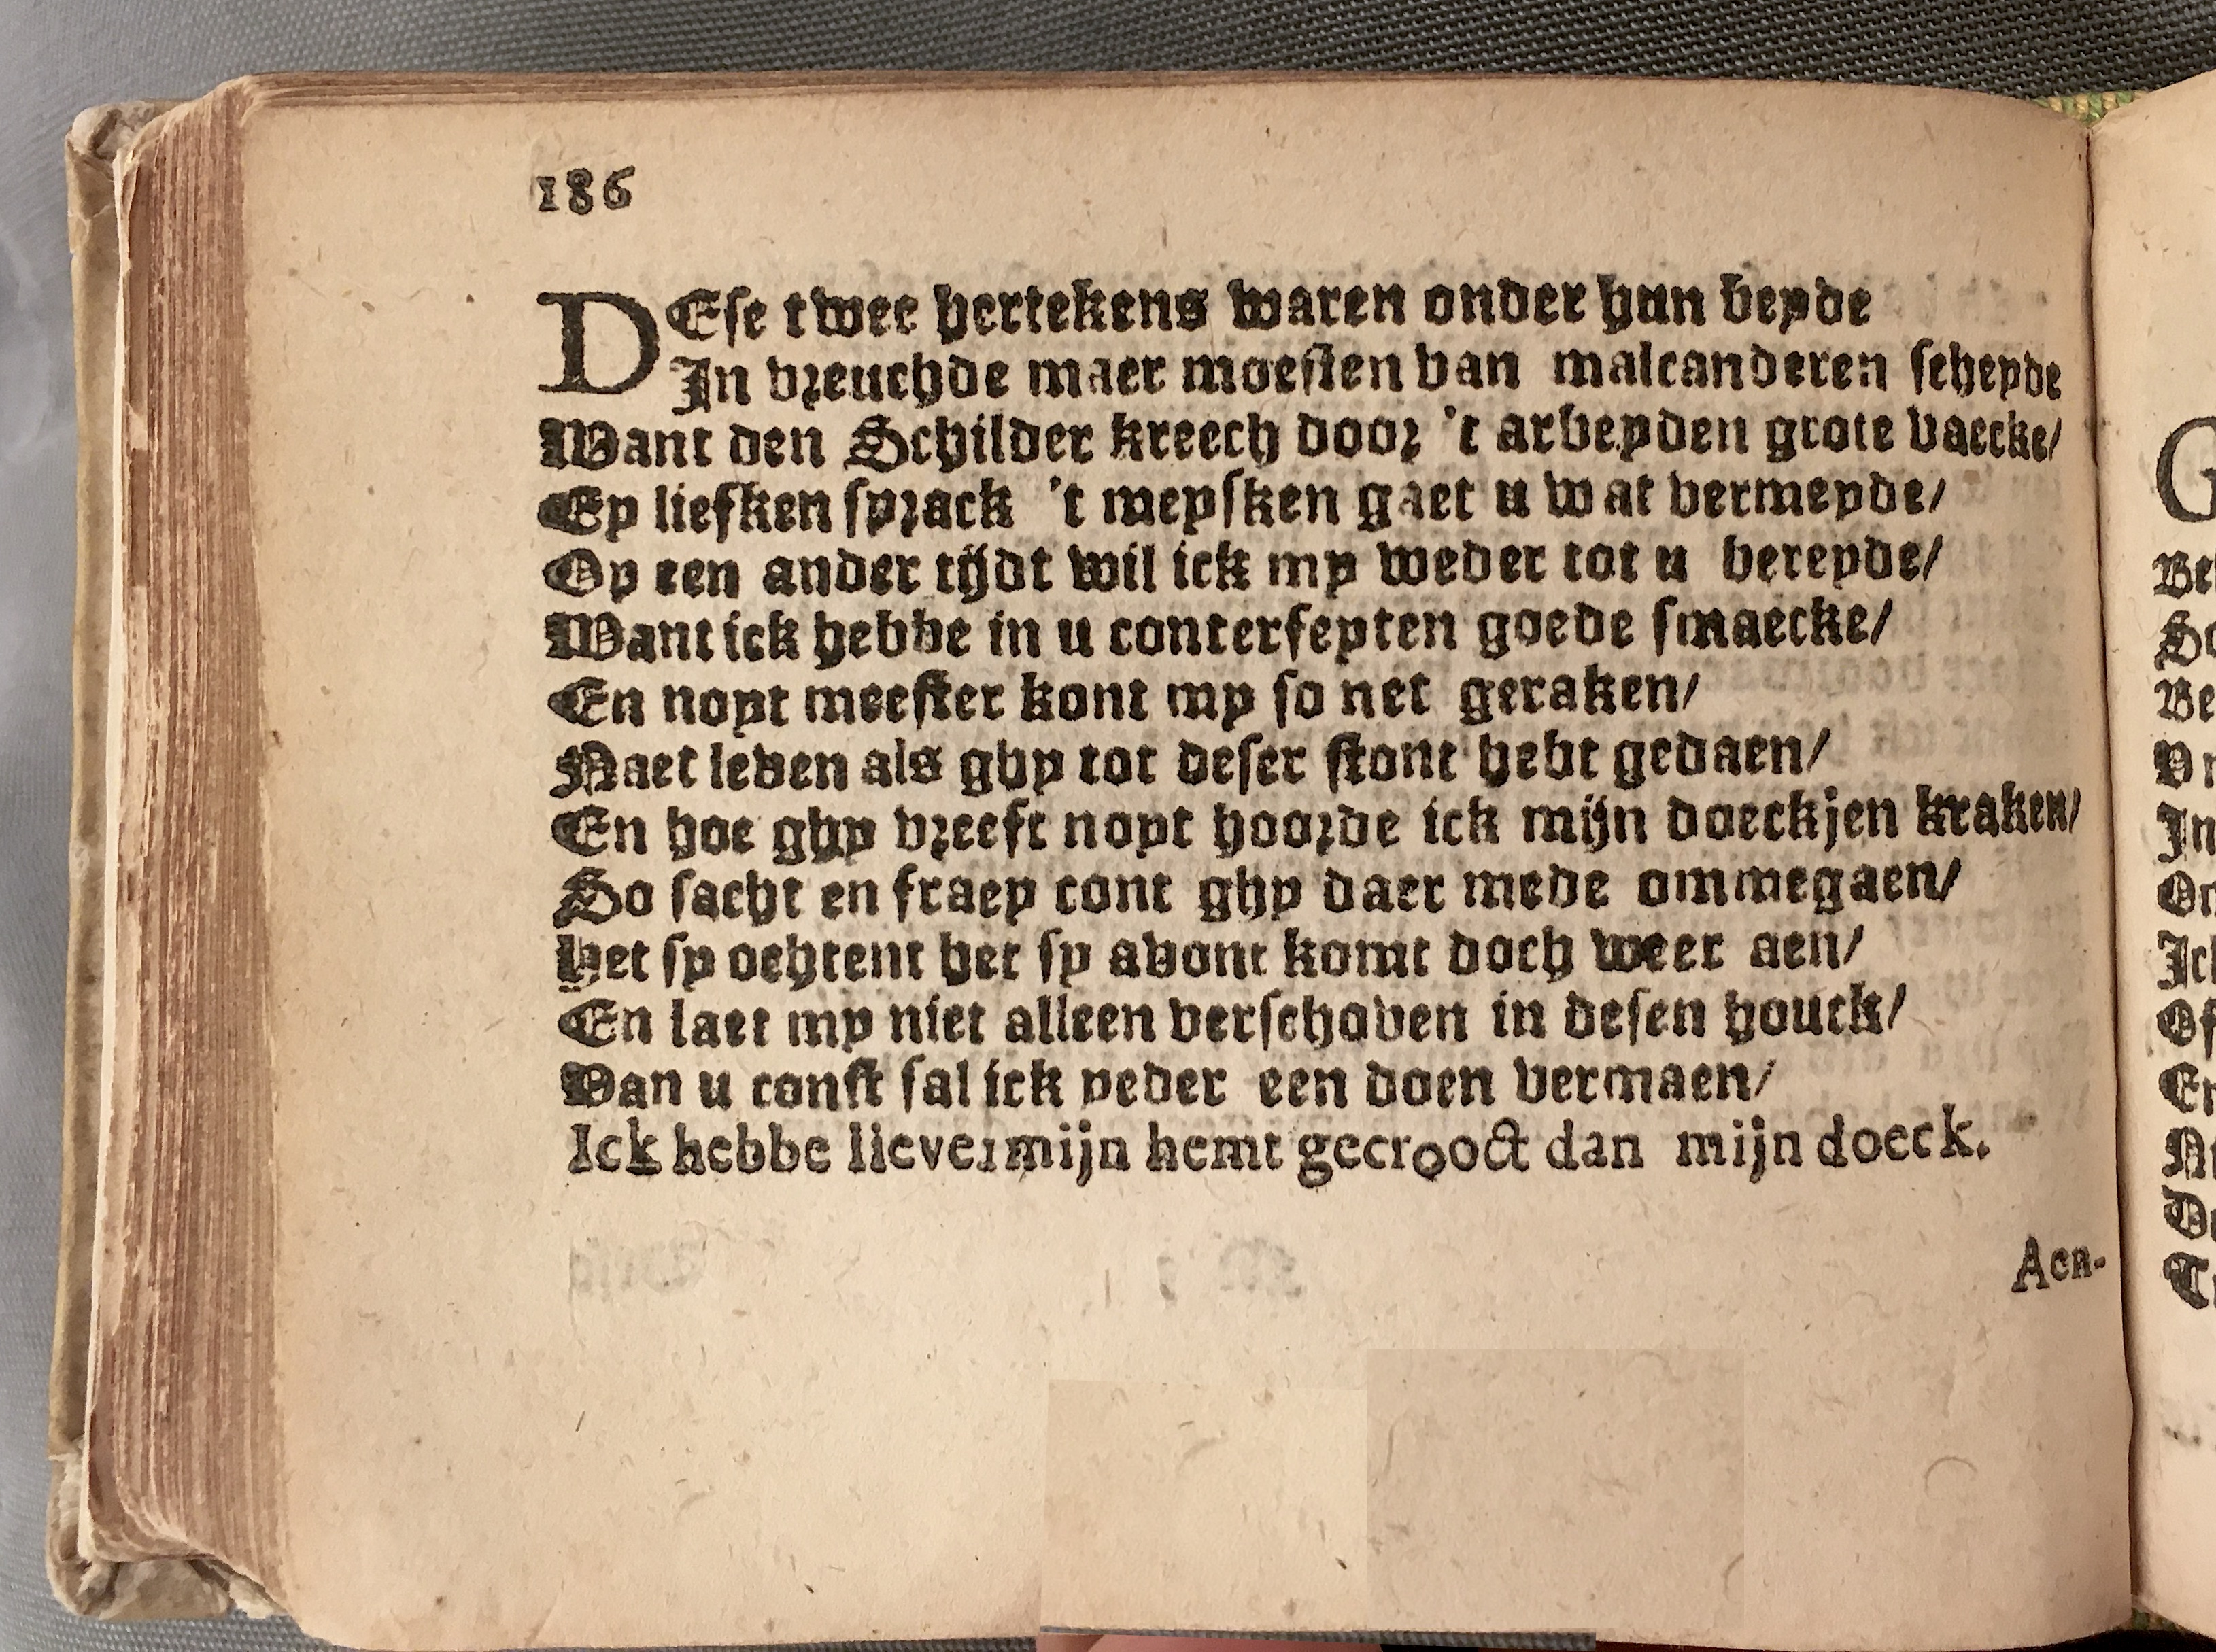 186
DEse twee hertekens waren onder hun beyde
In vreuchde maer moesten van malcanderen scheyde
Want den Schilder kreech door 't arbeyden grote vaecke/
Ey liefken sprack 't meysken gaet u wat vermeyde/
Op een ander tijdt wil ick my weder tot u bereyde/
Want ick hebbe in u conterfeyten goede smaecke/
En noyt meester kont my so net geraken/
Naet leven als ghy tot deser stont hebt gedaen/
En hoe ghy vreeft noyt hoorde ick mijn doeckjen kraken/
So sacht en fraey cont ghy daer mede ommegaen/
Het sy ochtent het sy avont komt doch weer aen/
En laet my niet alleen verschoven in desen houck/
Van u const sal ick yeder een doen vermaen/
Ick hebbe liever mijn hemt gecrooct dan mijn doeck.
Aen-